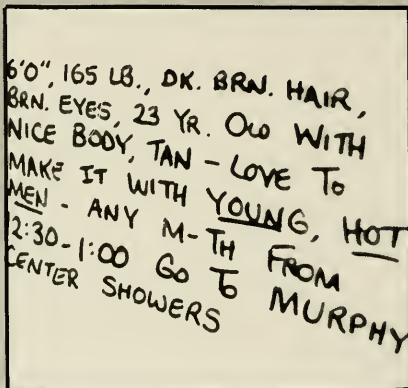 6'0", 165 LB., DK. BRN. HAIR,
BRN. EYES, 23 YR. OLD WITH
NICE BODY, TAN - LOVE TO
MAKE IT WITH YOUNG, HOT
MEN - ANY M-TH FROM
12:30-1:00 GO TO MURPHY
CENTER SHOWERS